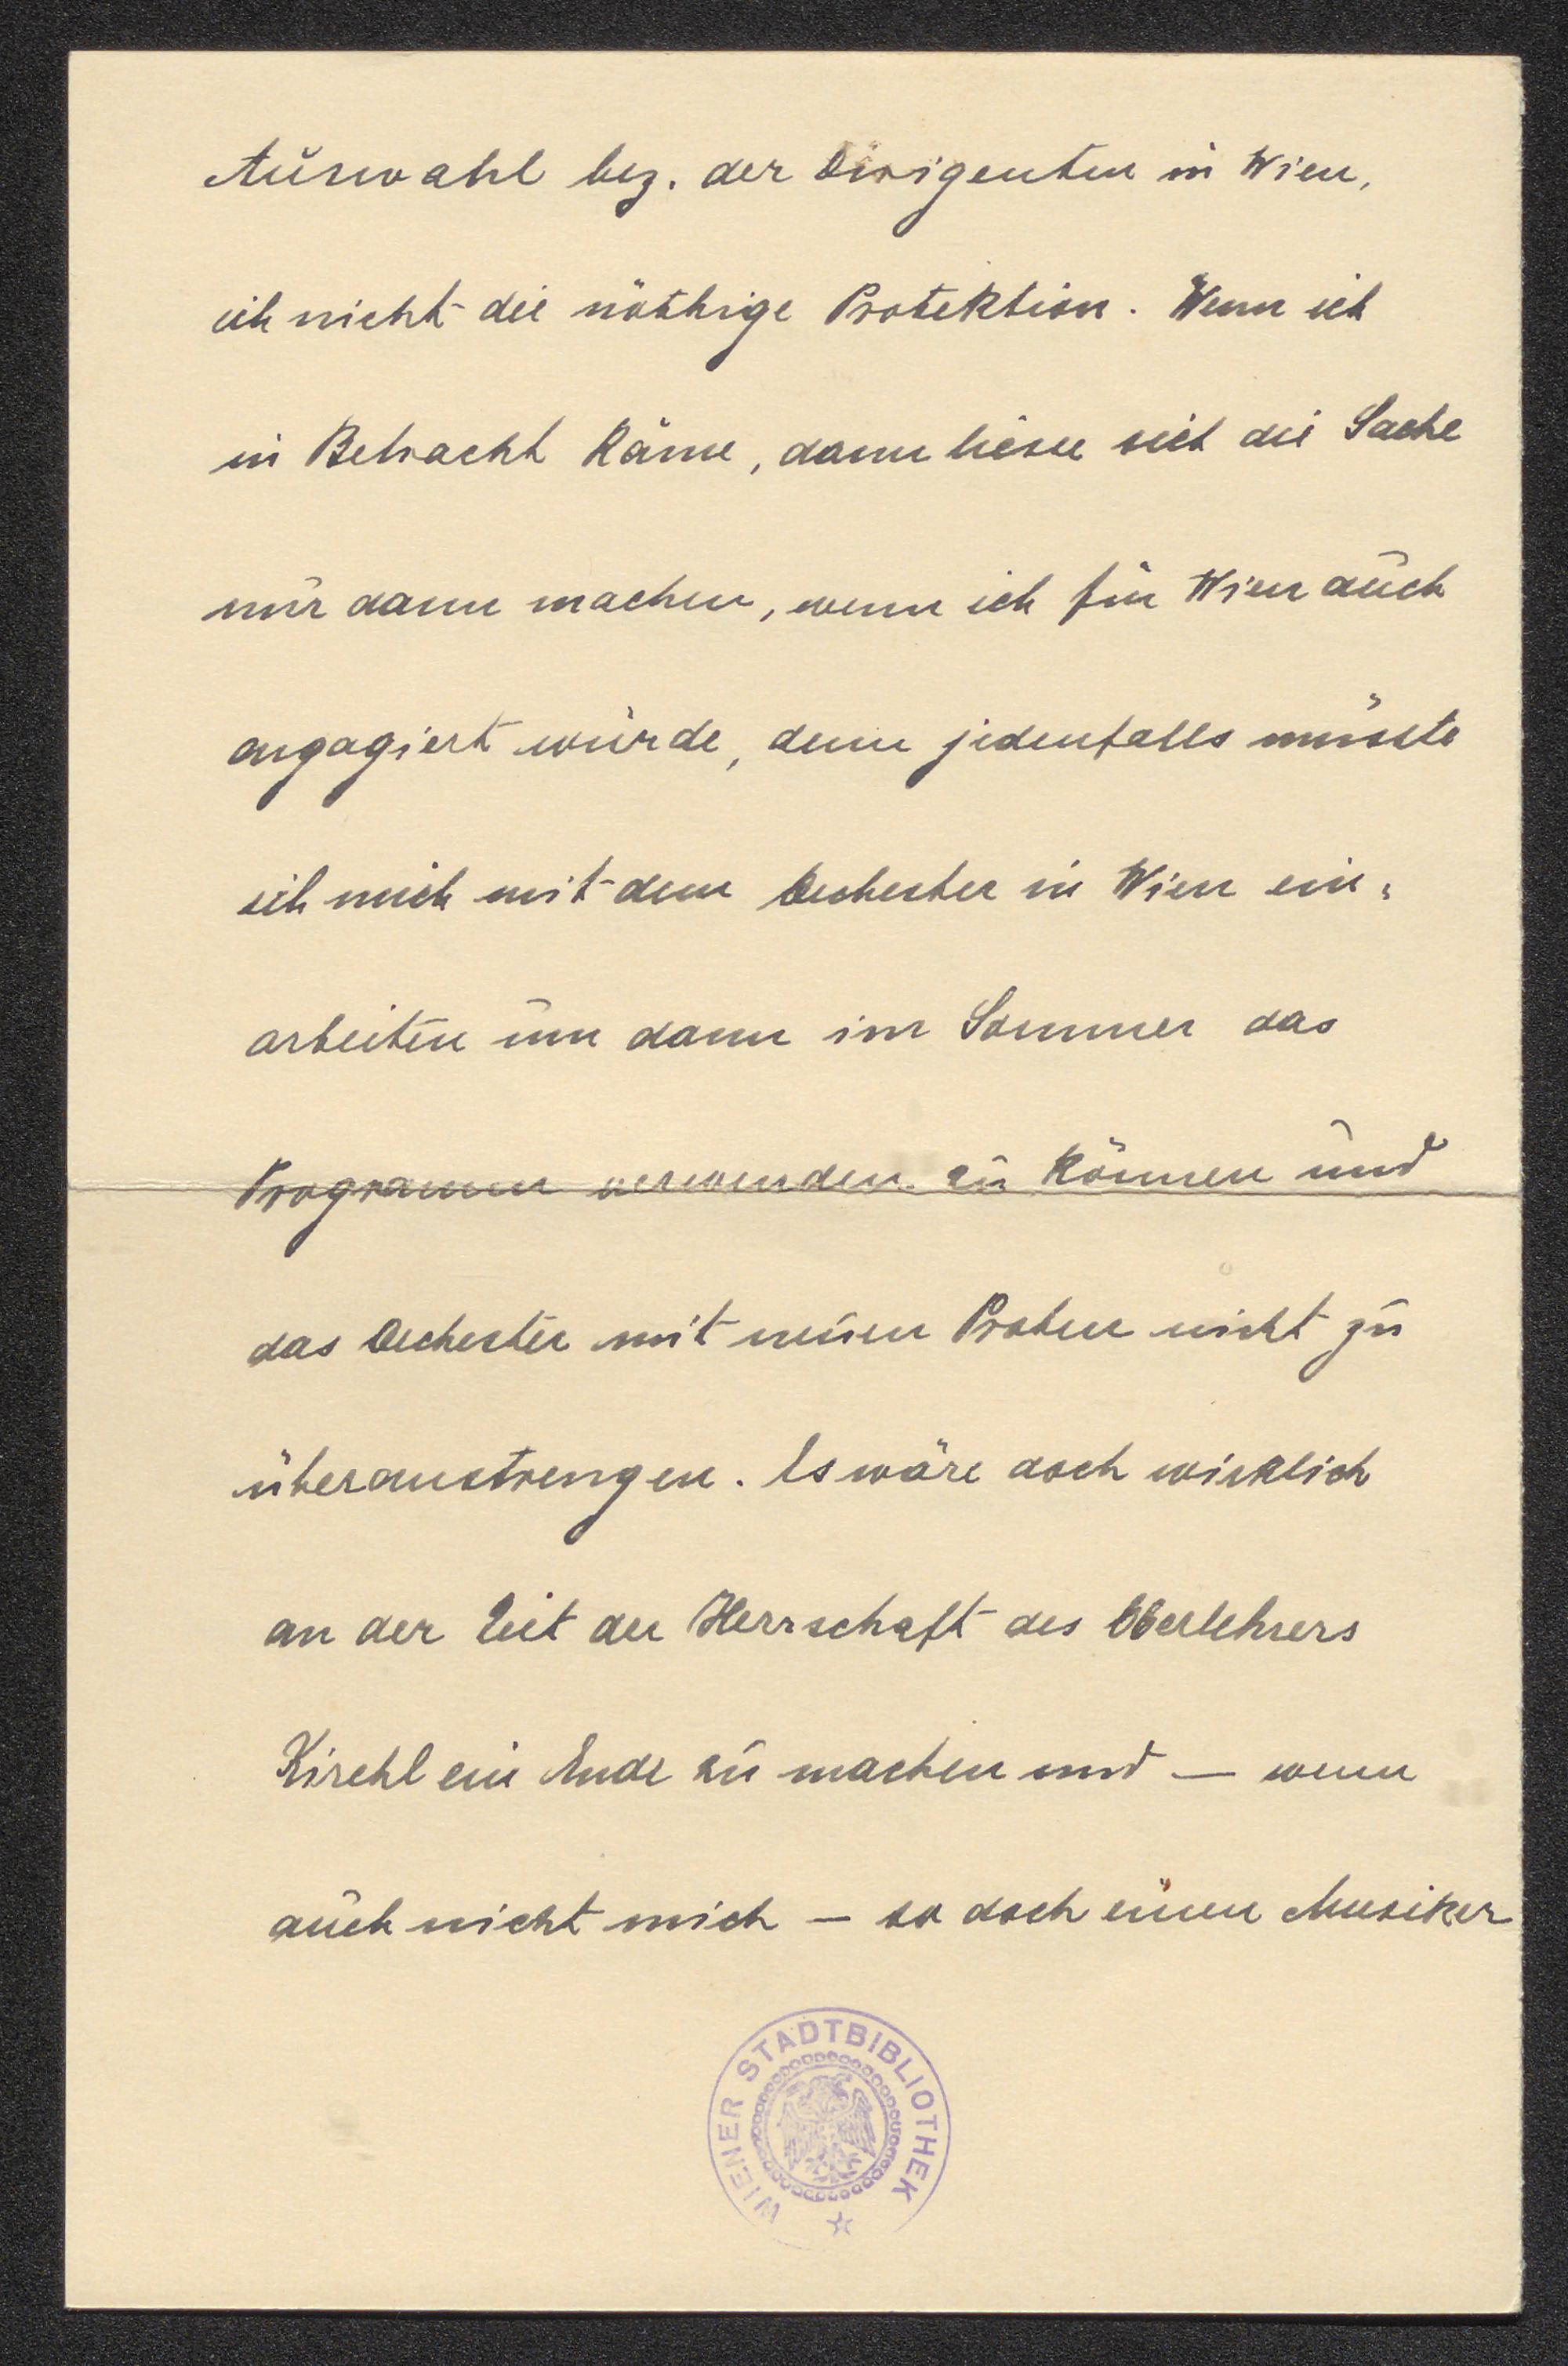 Auswahl bez. der Dirigenten in Wien,
ich nicht die nöthige Protektion. Wenn ich
in Betracht käme, dann liesse sich die Sache
nur dann machen, wenn ich für Wien auch
angagiert würde, denn jedenfalls müsste
ich mich mit dem Orchester in Wien ein=
arbeiten um dann im Sommer das
Programm verwenden zu können und
das Orchester mit neuen Proben nicht zu
überanstrengen. Es wäre doch wirklich
an der Zeit der Herrschaft des Oberlehrers
Kirchl ein Ende zu machen und — wenn
auch nicht mich — so doch einen Musiker
WIENER STADTBIBLIOTHEK